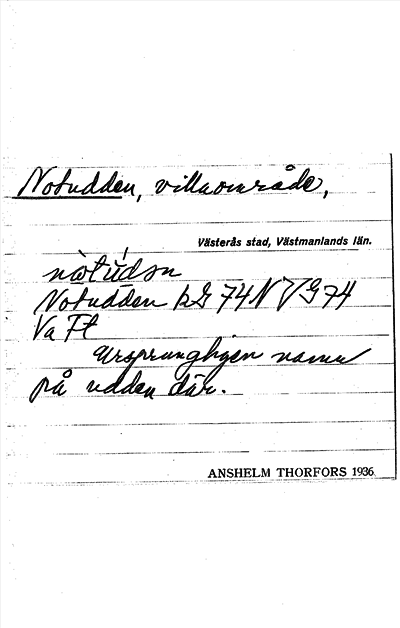 Notudden, villaområde,
Västerås stad, Västmanlands län.
Notudden 74 N V G 74
Va Ft
Ursprungligen namn
på udden där.
ANSHELM THORFORS 1936.